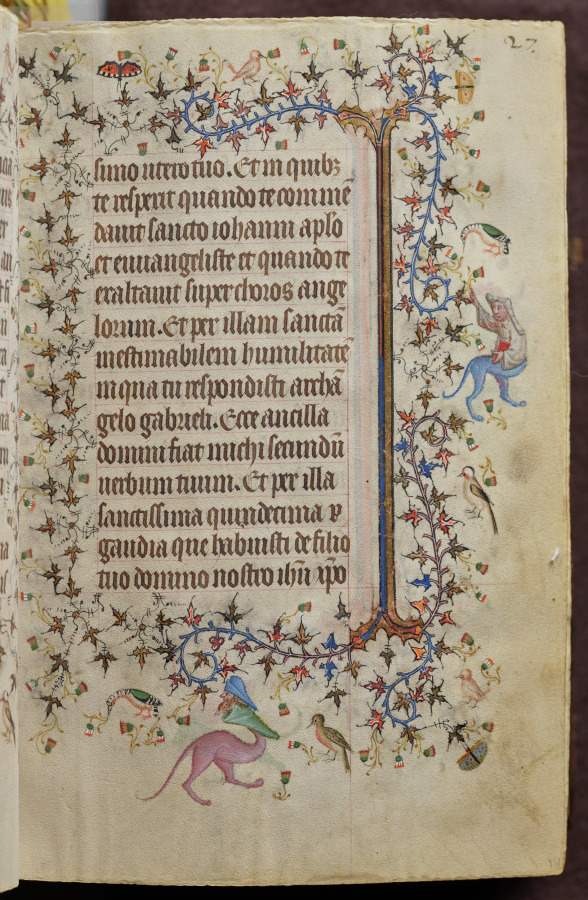 27.
simo utero tuo. Et in quibz
te respexit quando te commē
dauit sancto iohanni aplo
et euuangeliste et quando te
exaltauit super choros ange
lorum. Et per illam sanctā
inestimabilem humilitatē
in qua tu respondisti archā
gelo gabrieli. Ecce ancilla
domini fiat michi secundū
uerbum tuum. Et per illa
sanctissima quindecima v
gaudia que habuisti de filio
tuo domino nostro ihū xp̄o